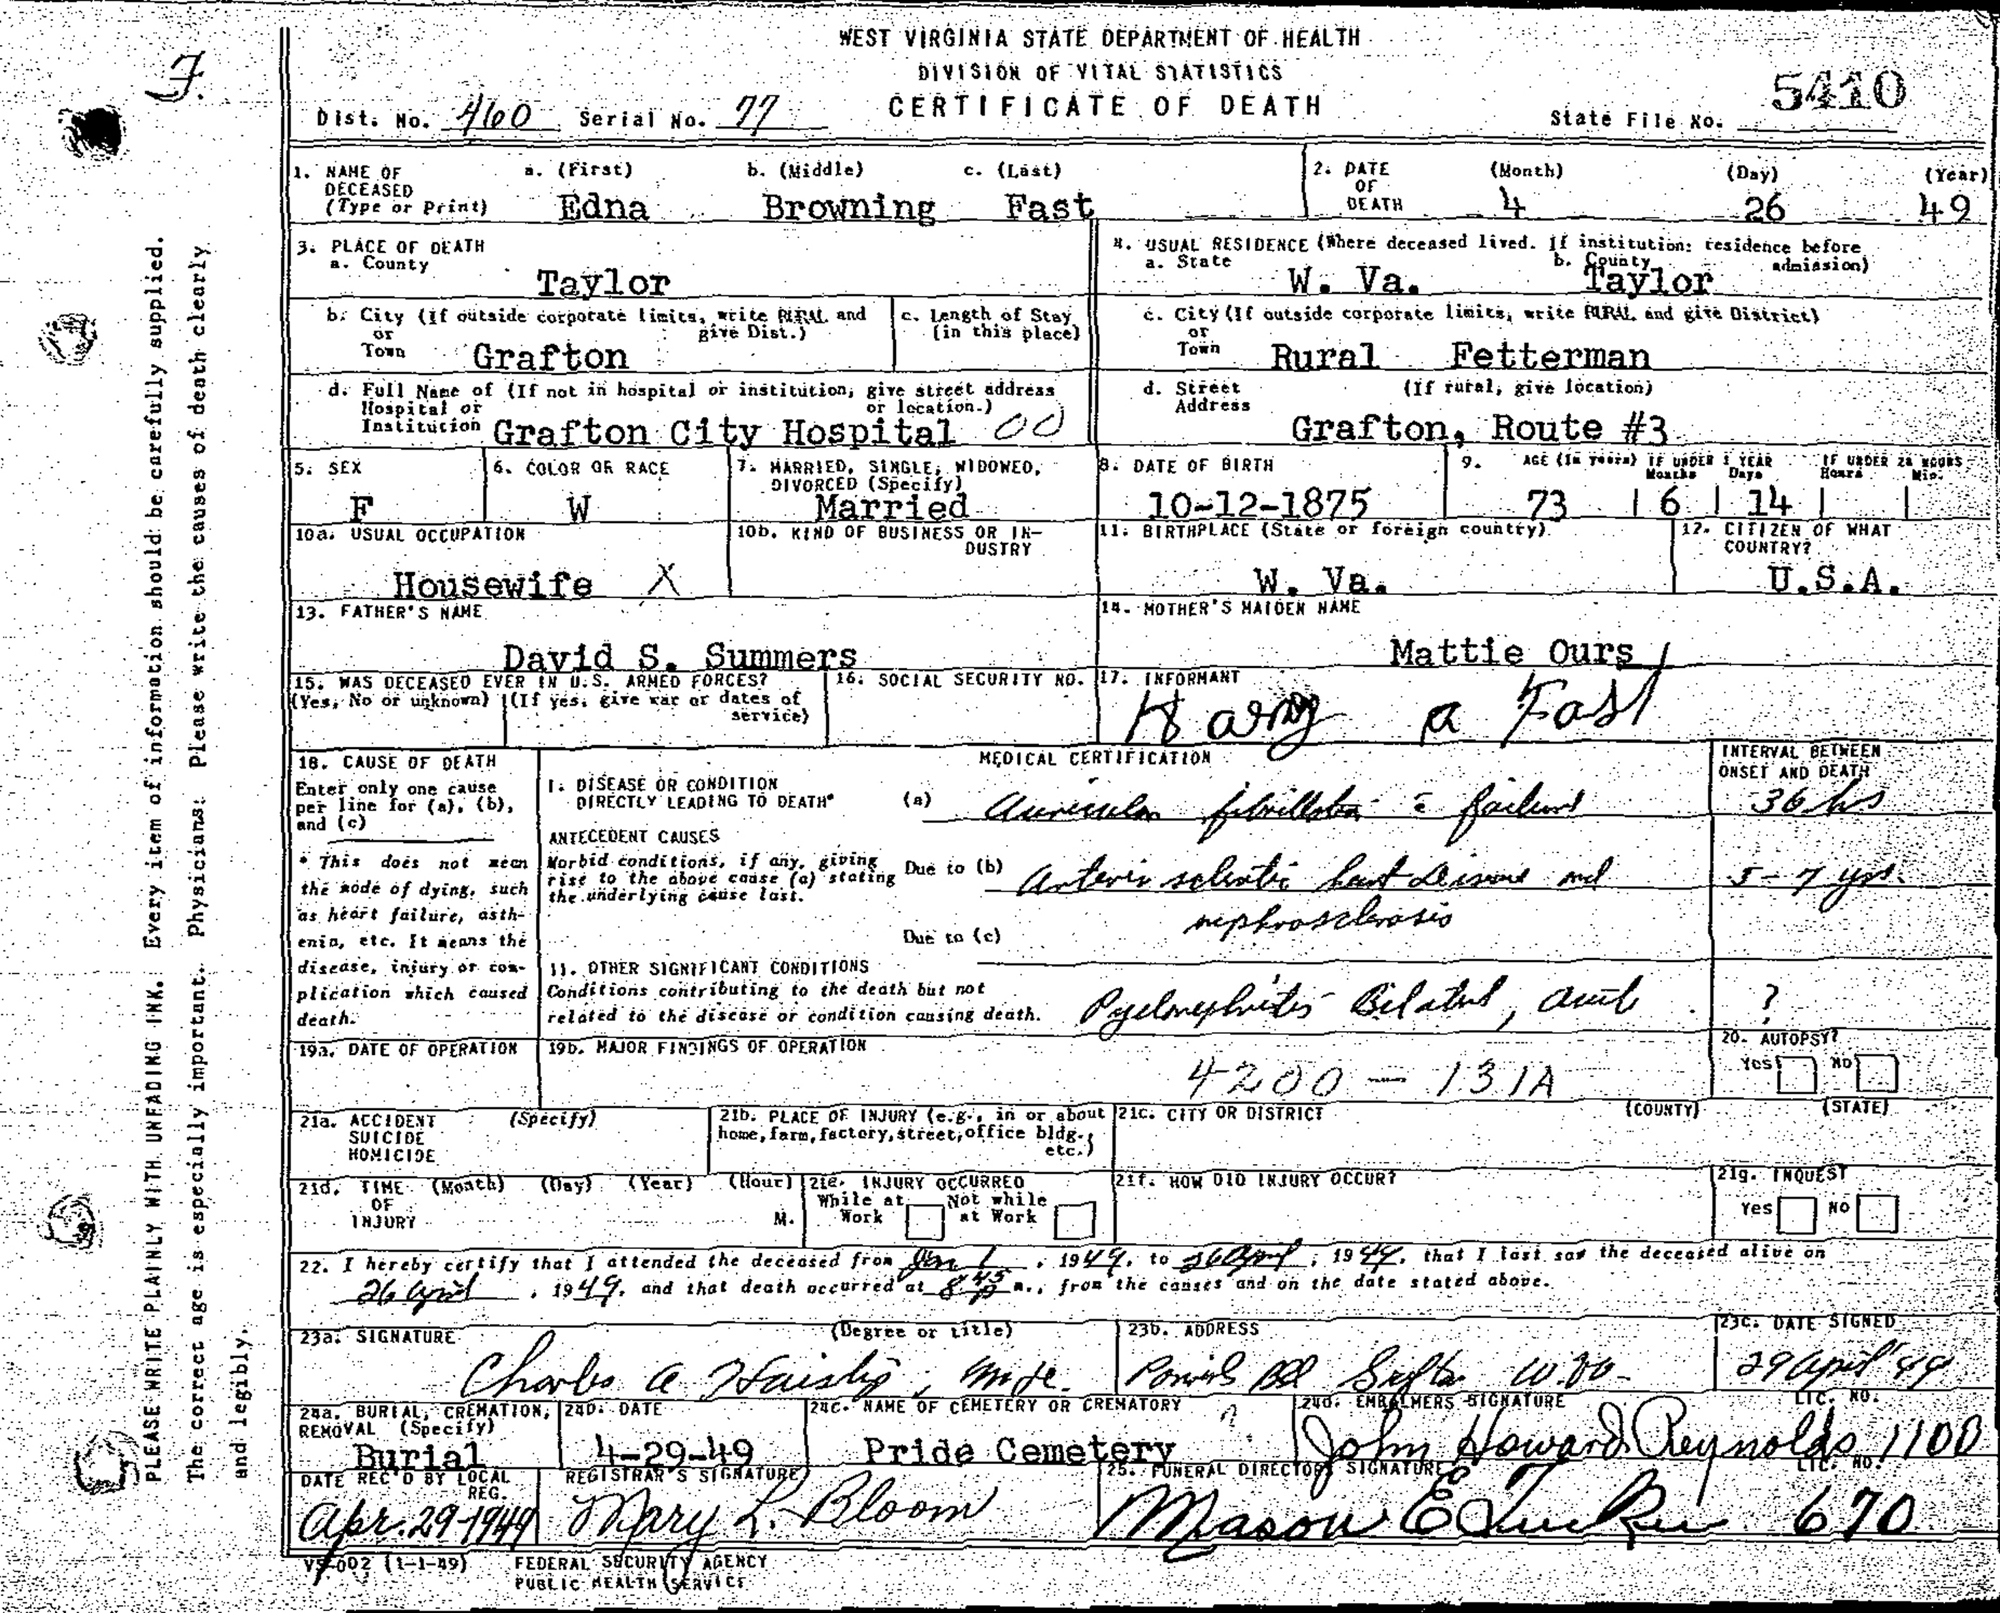 WEST VIRGINIA STATE DEPARTMENT OF HEALTH
DIVISION OF VITAL STATISTICS
CERTIFICATE OF DEATH
Dist. No. 460 Serial No. 77
State File No. 5410
1. NAME OF DECEASED (Type or Print) a. (First) b. (Middle) c. (Last)
Edna Browning Fast
2. DATE OF DEATH (Month) (Day) (Year)
4 26 49
3. PLACE OF DEATH
a. County
Taylor
4. USUAL RESIDENCE (Where deceased lived. If institution: residence before admission)
a. State W. Va. b. County Taylor
b. City (if outside corporate limits, write RURAL and give Dist.)
or Town Grafton
c. Length of Stay (in this place)
c. City (If outside corporate limits, write RURAL and give District)
or Town Rural Fetterman
d. Full Name of (If not in hospital or institution, give street address or location.)
Hospital or Institution Grafton City Hospital 00
d. Street Address (If rural, give location)
Grafton, Route #3
5. SEX
F
6. COLOR OR RACE
W
7. MARRIED, SINGLE, WIDOWED, DIVORCED (Specify)
Married
8. DATE OF BIRTH
10-12-1875
9. AGE (In years) IF UNDER 1 YEAR Months Days IF UNDER 24 HOURS Hours Min.
73 6 14
10a. USUAL OCCUPATION
Housewife X
10b. KIND OF BUSINESS OR IN-
DUSTRY
11. BIRTHPLACE (State or foreign country)
W. Va.
12. CITIZEN OF WHAT COUNTRY?
U.S.A.
13. FATHER'S NAME
David S. Summers
14. MOTHER'S MAIDEN NAME
Mattie Ours
15. WAS DECEASED EVER IN U.S. ARMED FORCES?
(Yes, No or unknown) (If yes, give war or dates of service)
16. SOCIAL SECURITY NO.
17. INFORMANT
Harry a Fast
18. CAUSE OF DEATH
Enter only one cause
per line for (a), (b),
and (c)
* This does not mean
the mode of dying, such
as heart failure, asth-
enia, etc. It means the
disease, injury or com-
plication which caused
death.
MEDICAL CERTIFICATION
INTERVAL BETWEEN ONSET AND DEATH
I. DISEASE OR CONDITION
DIRECTLY LEADING TO DEATH*
(a) Auricular fibrillation c failure 36 hrs
ANTECEDENT CAUSES
Morbid conditions, if any, giving
rise to the above cause (a) stating
the underlying cause last.
Due to (b) Arterio sclerotic heart disease and 5-7 yrs.
nephrosclerosis
Due to (c)
II. OTHER SIGNIFICANT CONDITIONS
Conditions contributing to the death but not
related to the disease or condition causing death.
Pyelonephritis Bilateral, acute ?
19a. DATE OF OPERATION
19b. MAJOR FINDINGS OF OPERATION
4200 - 131A
20. AUTOPSY?
Yes No
21a. ACCIDENT (Specify)
SUICIDE
HOMICIDE
21b. PLACE OF INJURY (e.g., in or about
home, farm, factory, street, office bldg.,
etc.)
21c. CITY OR DISTRICT (COUNTY) (STATE)
21d. TIME OF INJURY (Month) (Day) (Year) (Hour)
M.
21e. INJURY OCCURRED
While at Work Not while at Work
21f. HOW DID INJURY OCCUR?
21g. INQUEST
Yes No
22. I hereby certify that I attended the deceased from Jan 1, 1949, to 26 April, 1949, that I last saw the deceased alive on
26 April, 1949, and that death occurred at 8:45 p m., from the causes and on the date stated above.
23a. SIGNATURE (Degree or title)
Charles A Haislip,
23b. ADDRESS
Grafton W.Va.
23c. DATE SIGNED
29 April 49
24a. BURIAL, CREMATION, REMOVAL (Specify)
Burial
24b. DATE
4-29-49
24c. NAME OF CEMETERY OR CREMATORY
Pride Cemetery
24d. EMBALMERS SIGNATURE LIC. NO.
John Howard Reynolds 1100
DATE REC'D BY LOCAL REG.
Apr. 29-1949
REGISTRAR'S SIGNATURE
Mary L. Bloom
25. FUNERAL DIRECTORS SIGNATURE LIC. NO.
Mason E Tucker 670
VS-002 (1-1-49)
FEDERAL SECURITY AGENCY
PUBLIC HEALTH SERVICE
PLEASE WRITE PLAINLY WITH UNFADING INK. Every item of information should be carefully supplied.
The correct age is especially important. Physicians: Please write the causes of death clearly
and legibly.